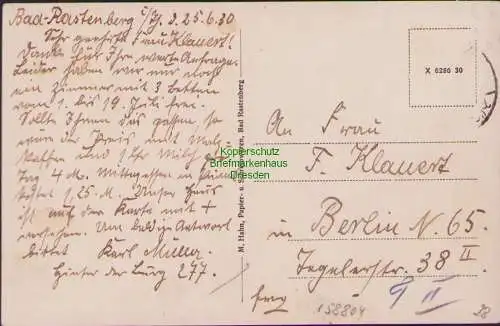 Bad-Rastenberg i/Th. d. 25.6.30
Sehr geehrte Frau Klauert!
Danke für Ihre werte Anfrage.
Leider haben wir nur noch
ein Zimmer mit 3 Betten
vom 1. bis 19. Juli frei.
Sollte Ihnen das passen, so
wäre der Preis mit
Kaffee und 1 Ltr Milch
Tag 4 M. Mittagessen
kostet 1,25 M. Unser Haus
ist auf der Karte mit +
versehen. Um baldige Antwort
bittet Karl Müller
Hinter der Burg 277.
M. Hahn, Papier- u. Bad Rastenberg
X 6286 30
An Frau
F. Klauert
in Berlin N. 65.
Tegelerstr. 38 II
frey
158804
9 II
28
Kopierschutz
Briefmarkenhaus
Dresden